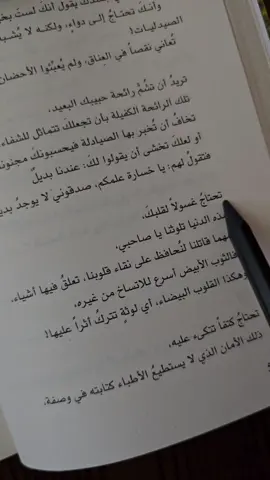 يقول لك أنك لستَ بخير
وأنكَ تحتاجُ إلى دواءٍ، ولكنه لا يُشبه
الصيدليات!
تُعاني نقصاً في العِناق، ولم يُعبِّئوا الأحضان
تريدُ أن تشُمَّ رائحة حبيبك البعيد،
تلك الرائحة الكفيلة بأن تجعلكَ تتماثل للشفاء
تخافُ أن تُخبر بها الصيادلة فيحسبونكَ مجنوناً
أو لعلكَ تخشى أن يقولوا لكَ: عندنا بديلٌ
فتقولُ لهم: يا خسارة علمكم، صدقوني لا يوجدُ بديل
تحتاجُ غسولاً لقلبكَ،
هذه الدنيا تلوثنا يا صاحبي،
مهما قاتلنا لنُحافظ على نقاء قلوبنا، تعلقُ فيها أشياء،
فالثوب الأبيض أسرع للاتساخ من غيره،
وهكذا القلوب البيضاء، أي لوثةٍ تتركُ أثراً عليها!
تحتاج كتفاً تتكىء عليه،
ذلك الأمان الذي لا يستطيعُ الأطباء كتابته في وصفة،